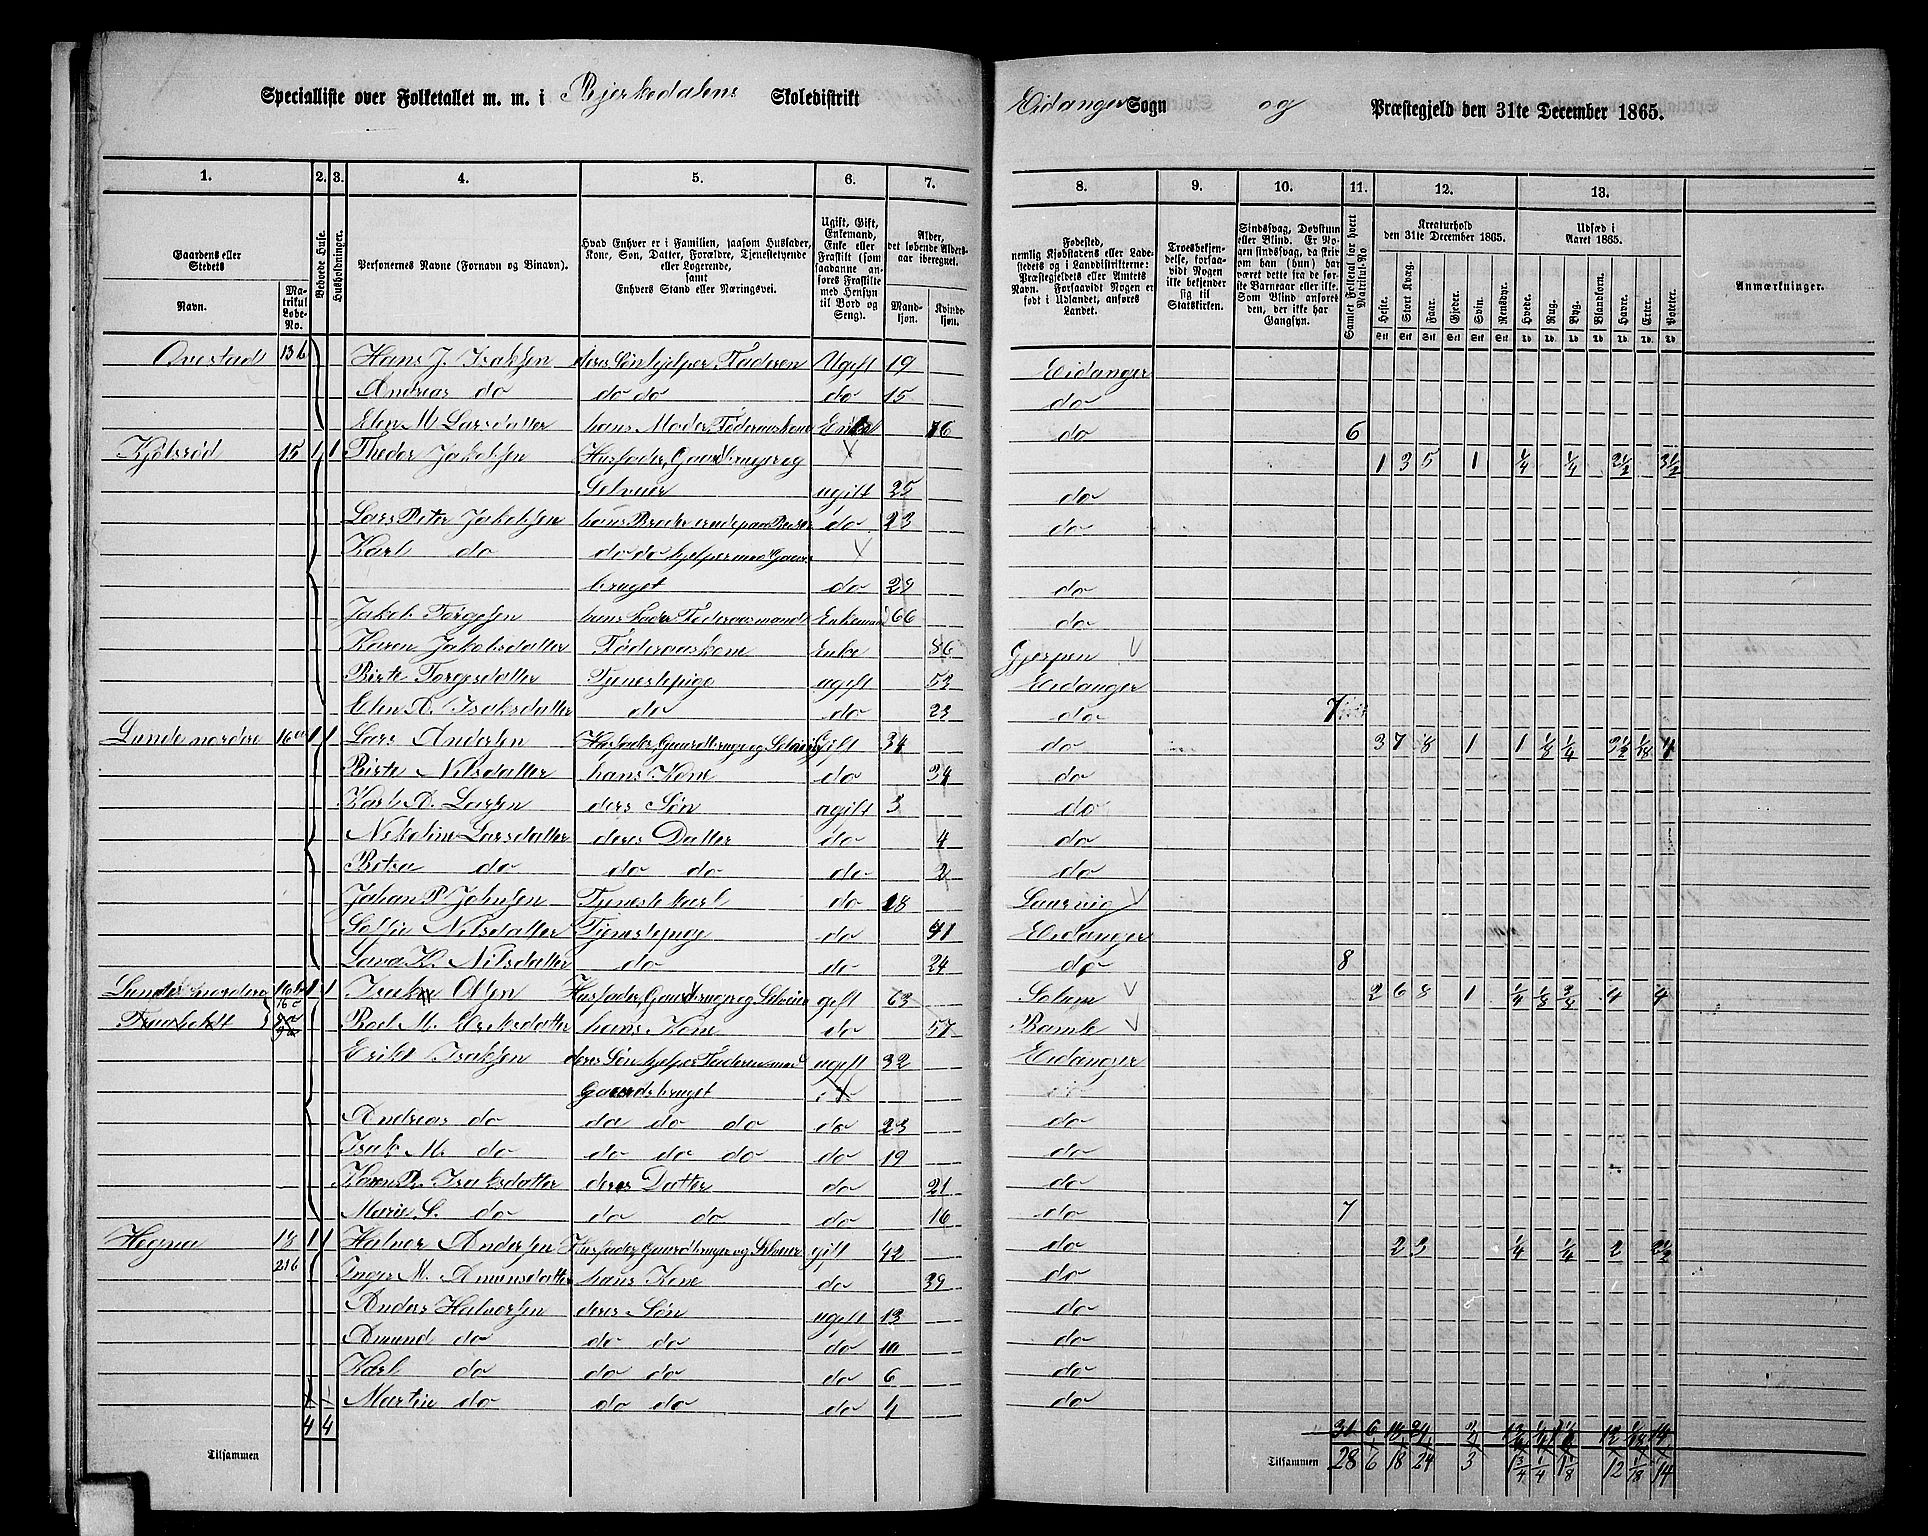 Specialliste over Folketallet m. m. i Bjerkedalens Skoledistrikt
Eidanger Sogn og Præstegjeld den 31te December 1865.
1. 2. 3. 4. 5. 6. 7. 8. 9. 10. 11. 12. 13.
Gaardens eller Stedets
Navn.
Matrikul Løbe-No.
Beboede Huse.
Husholdninger.
Personernes Navne (Fornavn og Binavn).
Hvad Enhver er i Familien, saasom Husfader, Kone, Søn, Datter, Forældre, Tjenestetyende eller Logerende, samt Enhvers Stand eller Næringsvei.
Ugift, Gift, Enkemand, Enke eller Fraskilt (som saadanne anføres Fraskilte med Hensyn til Bord og Seng).
Alder, det løbende Aldersaar iberegnet.
Mandkjøn. Kvindekjøn.
Fødested, nemlig Kjøbstadens eller Ladestedets og i Landdistrikterne: Præstegjeldets eller Amtets Navn. Forsaavidt Nogen er født i Udlandet, anføres Landet.
Troesbekjendelse, forsaavidt Nogen ikke bekjender sig til Statskirken.
Sindssvag, Døvstum eller Blind. Er Nogen sindssvag, da skrives om han (hun) har været dette fra de første Barneaar eller ikke. Som Blind anføres den, der ikke har Gangsyn.
Samlet Folketal for hvert Matrikul-No
Kreaturhold den 31te December 1865.
Heste. Stort Kvæg. Faar. Gjeder. Svin. Rensdyr.
Udsæd i Aaret 1865.
Hvede. Rug. Byg. Blandkorn. Havre. Erter. Poteter.
Anmærkninger.
Ovestad 13b Hans J. Isaksen deres Søn hjelper Faderen Ugift 19 Eidanger
Andreas do do do do 15 do
Elen M. Larsdatter hans Moder, Føderaadskone Enke 76 do 6
Kjølsrød 15 1 1 Thedor Jakobsen Husfader, Gaardbruger og 1 3 5 1 1/4 1/4 2 1/2 3 1/2
Selveier ugift 25 do
Lars Peter Jakobsen hans Broder do 23 do
Karl do do do hjelper med Gaards-
bruget do 29 do
Jakob Torgesen hans Fader Føderaadsmand Enkemand 66 do
Karen Jakobsdatter Føderaadskone Enke 86 Gjerpen
Birte Torgesdatter Tjenestepige ugift 53 Eidanger
Elen A. Isaksdatter do do 23 do 7
Lunde nordre 16a 1 1 Lars Andersen Husfader, Gaardbruger og Selveier Gift 34 do 3 7 8 1 1 1/8 1/4 3 1/2 1/18 4
Birte Nilsdatter hans Kone do 34 do
Karl A. Larsen deres Søn ugift 3 do
Nikoline Larsdatter deres Datter do 4 do
Petra do do do do 2 do
Johan P. Johnsen Tjenestekarl do 18 Laurvig
Sofie Nilsdatter Tjenestepige do 41 Eidanger
Lava K. Nilsdatter do do 24 do 8
Lunde nordre 16b 1 1 Isak Olsen Husfader, Gaardbruger og Selveier gift 63 Solum 2 6 8 1 1/4 1/8 3/8 4 4
16c Roel M. Eriksdatter hans Kone do 57 Bamle
Erikt Isaksen deres Søn hjelper Faderen med ugift 32 Eidanger
Gaardsbruget
Andreas do do do do do 23 do
Isak M. do do do do do 19 do
Karen P. Isaksdatter deres Datter do 21 do
Maria S. do do do do 16 do 7
Hegna 18 1 1 Halvor Andersen Husfader, Gaardbruger og Selveier gift 42 do 2 3 1/4 1/4 2 2 1/2
21b Inger M. Amunsdatter hans Kone do 39 do
Anders Halvorsen deres Søn ugift 13 do
Amund do do do do 10 do
Karl do do do do 6 do
Martin do do do do 4 do
4 4
31 6 18 24
Tilsammen Tilsammen 28 6 18 24 3 1 3/4 1/4 1 1/8 12 1/18 14